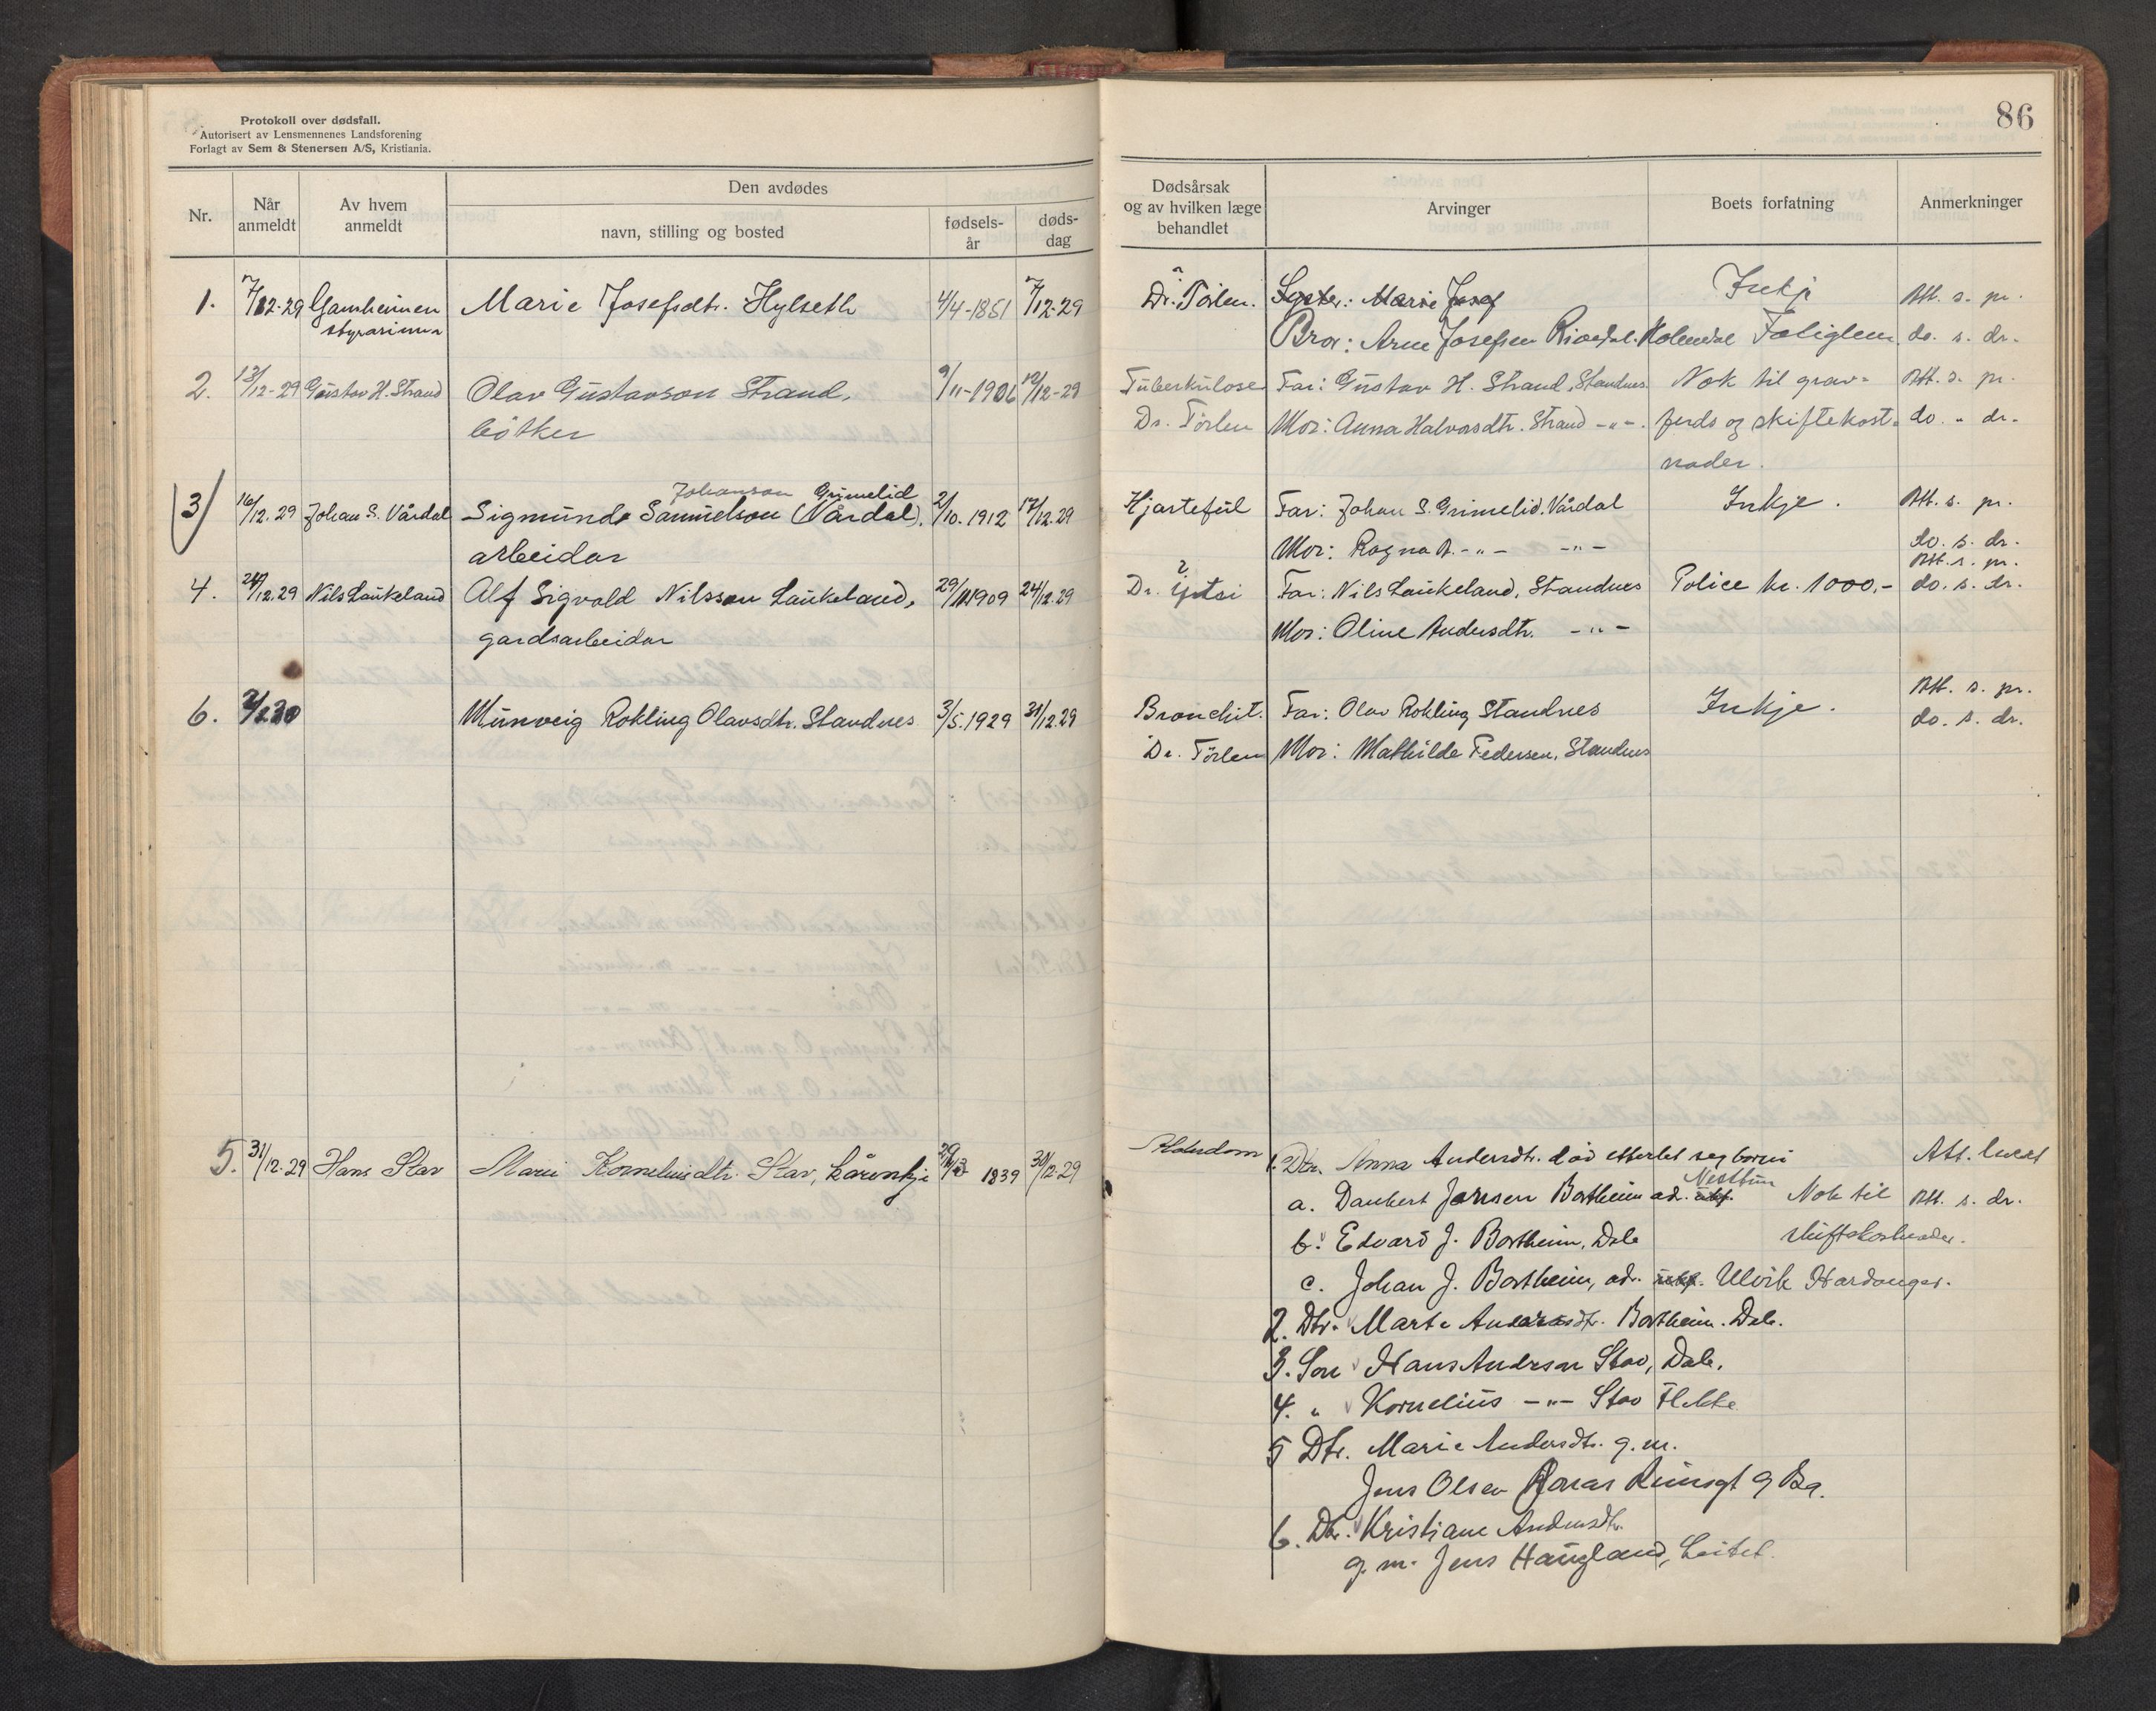 Protokoll over dødsfall.
Autorisert av Lensmennenes Landsforening
Forlagt av Sem & Stenersen A/S, Kristiania.
86
Nr.
Når anmeldt
Av hvem anmeldt
Den avdødes
navn, stilling og bosted
fødsels-år
døds-dag
Dødsårsak og av hvilken læge behandlet
Arvinger
Boets forfatning
Anmerkninger
1. 7/12-29 Gamheimen Marie Josefsdtr. Hylseth 4/4-1851 7/12-29 Dr. Törlen. Syster: Marie Josef Inkje Att. s. pr.
styrarinna Bror: Arne Josefsen Holmedal Fatiglem do. s. dr.
2. 13/12-29 Gustav H. Strand Olav Gustavson Strand, 9/11-1906 12/12-29 Tüberkulose Far: Gustav H. Strand, Standnes Nok til grav-
Att. s. pr.
bötker Dr. Törlen Mor: Anna Halvorsdtr. Strand -"-. ferds og skiftekost- do. " dr.
nader.
Johanson Grimelid
3 16/12.29 Johan S. Vårdal Sigmund Samuelson (Vårdal), 2/10.1912 17/12.29 Hjartefeil Far: Johan S. Grimelid. Vårdal Inkje. Att. s. pr.
arbeidar Mor: Ragna -"- -"- do. s. dr.
Att. s. pr.
4. 24/12.29 Nils Laukeland Alf Sigvald Nilsson Laukeland, 29/11 1909 24/12.29 Dr. Far: Nils Laukeland, Standnes Police kr. 1000,- do. s. dr.
gardsarbeidar Mor: Oline Andersdtr. -"-
Att. s. pr.
6. 2/1.30 Munveig Rokling Olavsdtr. Standnes 3/5.1929 31/12.29 Bronchit. Far: Olav Rokling Standnes Inkje. do. s. dr.
Dr. Törlen Mor: Mathilde Pedersen, Standnes
5. 31/12-29 Hans Stav Marie Korneliusdtr. Stav, 1839 30/12-29 Alderdom 1. Dtr. Anna Andersdtr. död etterlet seg born: Att.
Nesttun
a. Daubert Jansen Bortheim ad. Nok til Att. s. dr.
b. Edvard J. Bortheim, Dale skiftekostnader.
c. Johan J. Bortheim, ad. Ulvik Hardanger.
2. Dtr. Marte Andersdtr. Bortheim. Dale.
3. Son Hans Anderson Stav, Dale.
4. " Kornelius -"- Stav Flekke
5 Dtr. Marie Andersdtr. g. m.
Jens Olsen
6. Dtr. Kristiane Andersdtr.
g. m. Jens Haugland, Leitet.